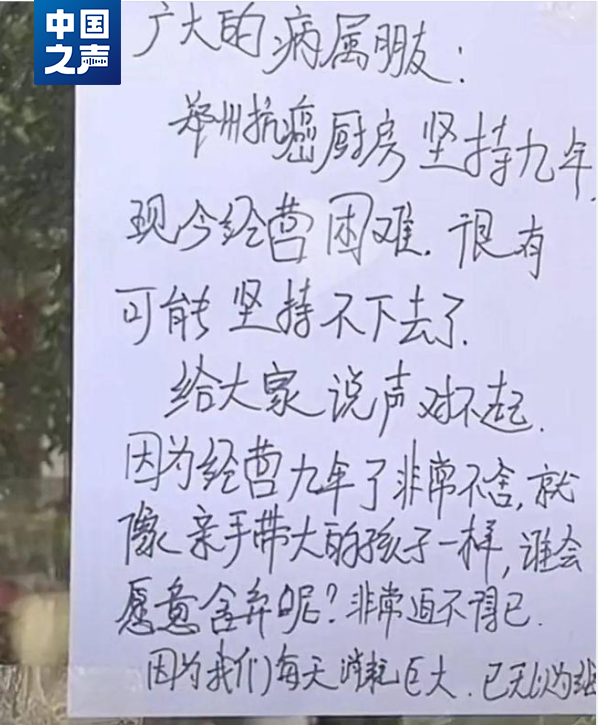 中国之声
广大的病属朋友：
郑州抗癌厨房坚持九年.
现今经营困难.很有
可能坚持不下去了.
给大家说声对不起.
因为经营九年了非常不舍,就
像亲手带大的孩子一样,谁会
愿意舍弃呢?非常迫不得已.
因为我们每天消耗巨大.已无以为继